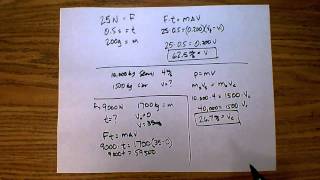 25N = F
0.5s = t
200g = m
F·t = mΔV
25·0.5 = (0.200)(V₂ - V)
25·0.5 = 0.200 V
62.5 m/s = V
10,000 kg 4 m/s
1500 kg car V = ?
p = mv
10,000·4 = 1500·V
40,000 = 1500 V
26.7 m/s = Vc
9000N 1700 kg = m
t = ?
Ft = mΔV
9000·t = 1700(35-0)
9000t = 59500